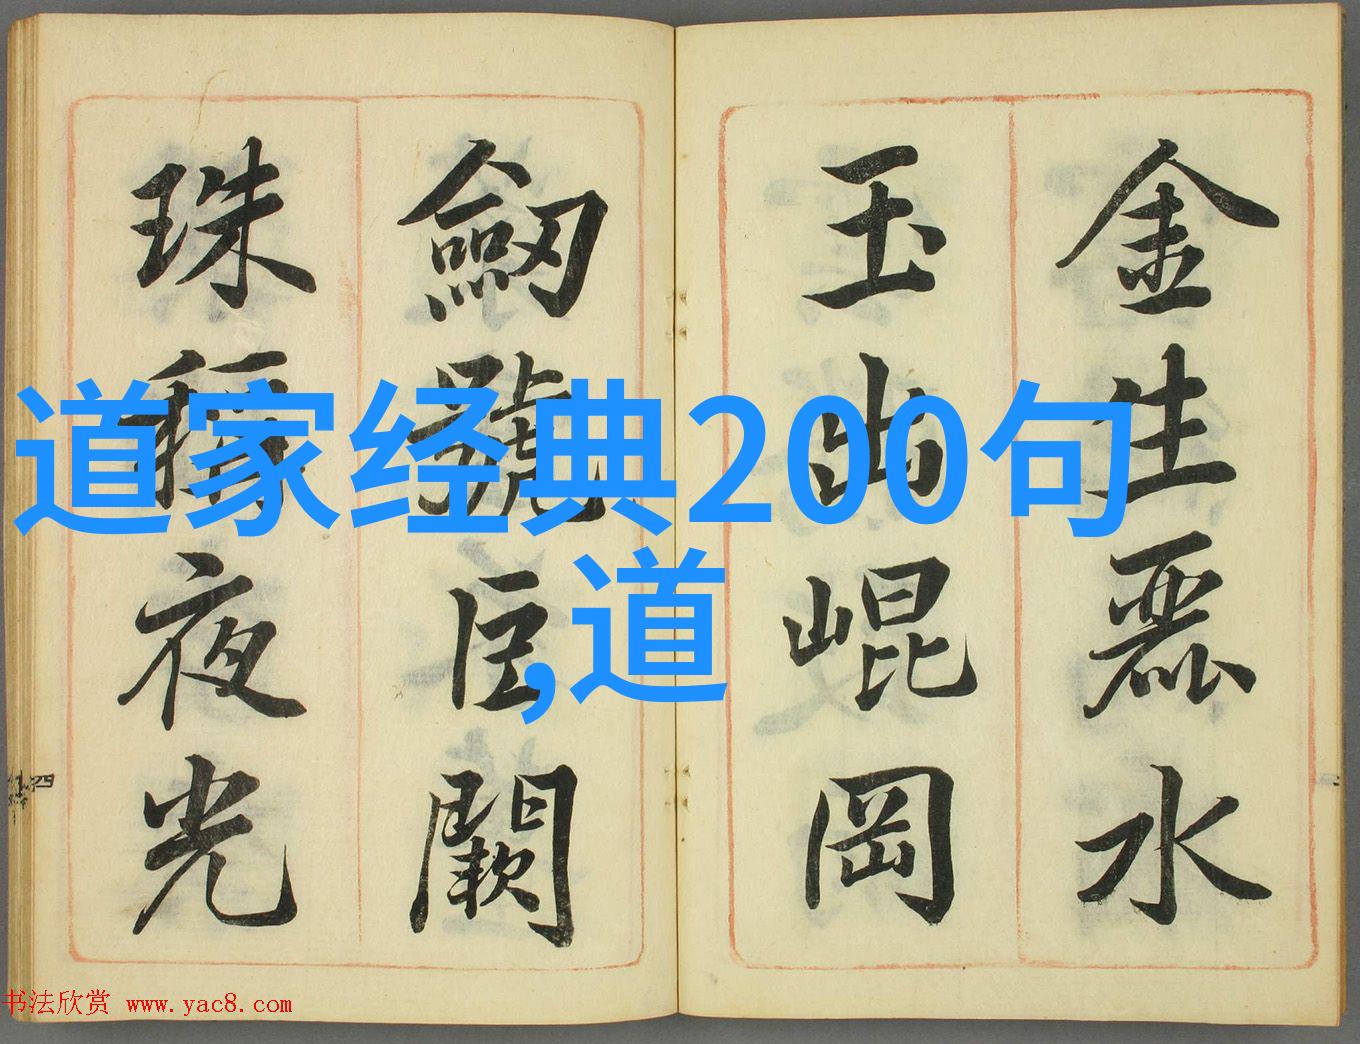 金生麗水
玉出崐岡
劒號巨闕
珠稱夜光
道家经典200句
,道
书法欣赏 www.yac8.com